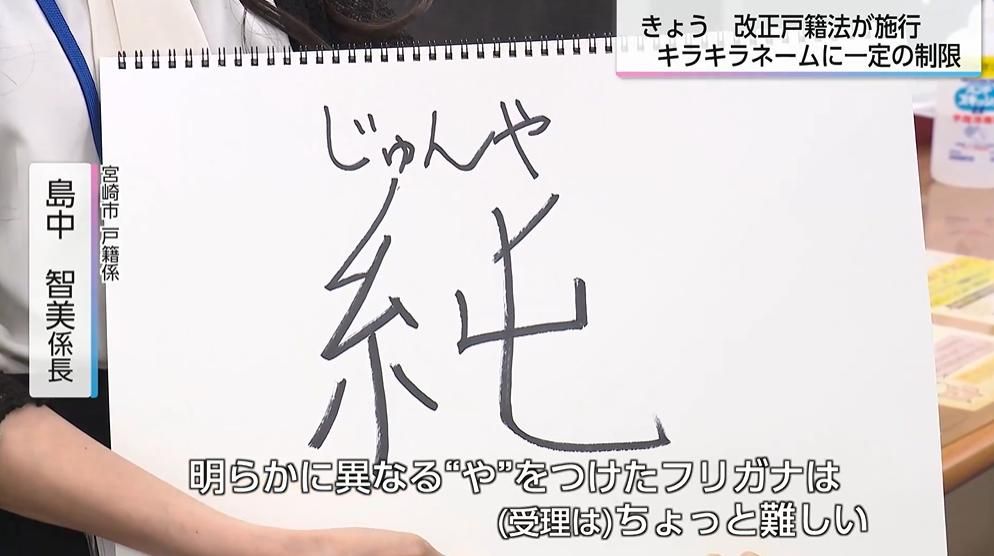 きょう 改正戸籍法が施行
キラキラネームに一定の制限
宮崎市 戸籍係
島中 智美係長
じゅんや
純
明らかに異なる“や”をつけたフリガナは
(受理は)ちょっと難しい